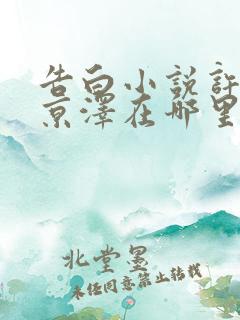 告白小说许
京泽在哪里
北堂墨
未经同意禁止转载